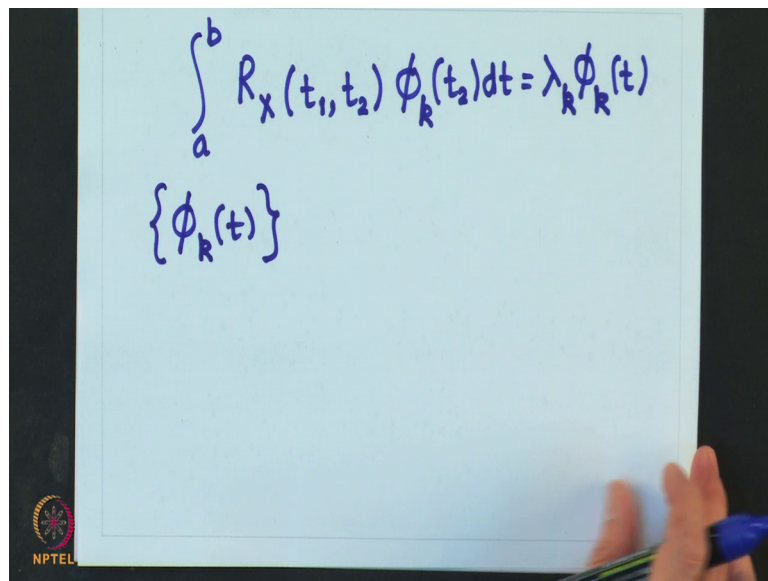 ∫_a^b R_X(t₁,t₂) ϕ_k(t₂)dt = λ_k ϕ_k(t)
{ϕ_k(t)}
NPTEL